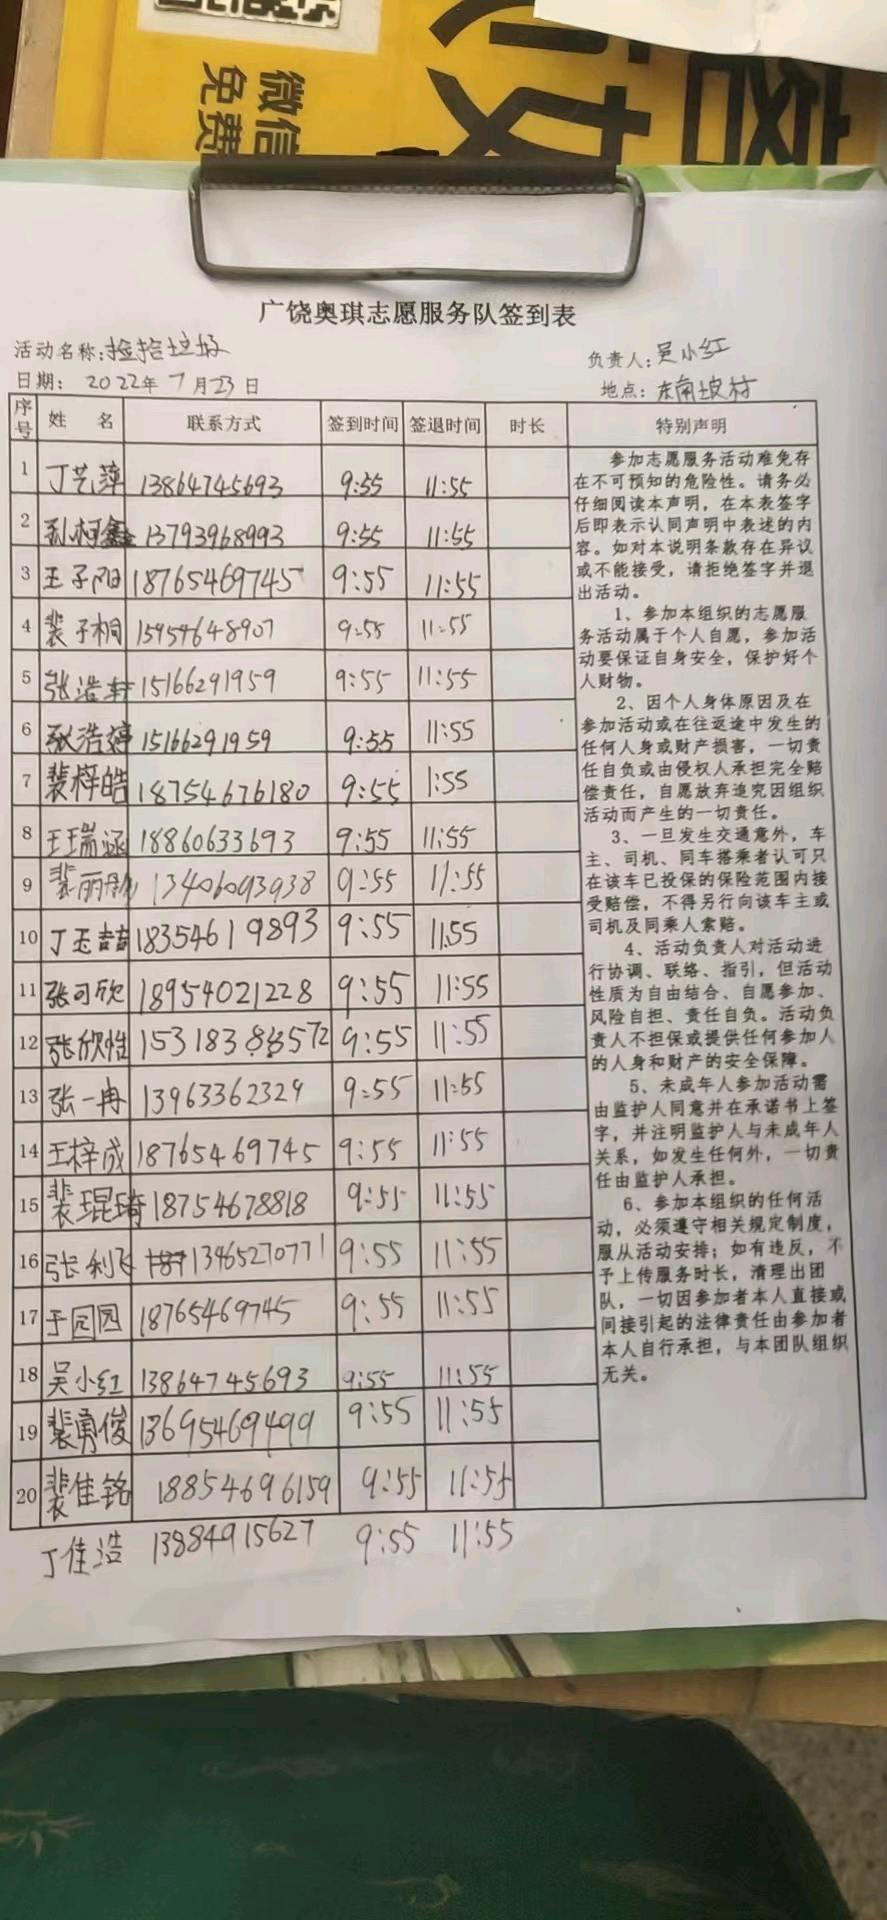 微信
免费
广饶奥琪志愿服务队签到表
活动名称:捡拾垃圾 负责人:吴小红
日期: 2022年 7月23日 地点:东南坡村
序号 姓 名 联系方式 签到时间 签退时间 时长 特别声明
1 丁艺萍 13864745693 9:55 11:55
2 孙柯鑫 13793968993 9:55 11:55
3 王子阳 18765469745 9:55 11:55
4 裴子桐 15954648907 9:55 11:55
5 张浩轩 15166291959 9:55 11:55
6 张浩婷 15166291959 9:55 11:55
7 裴梓皓 18754676180 9:55 1:55
8 王瑞涵 18860633693 9:55 11:55
9 裴丽 13406093938 9:55 11:55
10 丁玉喆 18354619893 9:55 11:55
11 张可欣 18954021228 9:55 11:55
12 张欣怡 15318388572 9:55 11:55
13 张一冉 13963362329 9:55 11:55
14 王梓成 18765469745 9:55 11:55
15 裴琨琦 18754678818 9:55 11:55
16 张利飞 13465270771 9:55 11:55
17 于园园 18765469745 9:55 11:55
18 吴小红 13864745693 9:55 11:55
19 裴勇俊 13695469499 9:55 11:55
20 裴佳铭 18854696159 9:55 11:55
丁佳浩 13884915627 9:55 11:55
参加志愿服务活动难免存
在不可预知的危险性。请务必
仔细阅读本声明，在本表签字
后即表示认同声明中表述的内
容。如对本说明条款存在异议
或不能接受，请拒绝签字并退
出活动。
1、参加本组织的志愿服
务活动属于个人自愿，参加活
动要保证自身安全，保护好个
人财物。
2、因个人身体原因及在
参加活动或在往返途中发生的
任何人身或财产损害，一切责
任自负或由侵权人承担完全赔
偿责任，自愿放弃追究因组织
活动而产生的一切责任。
3、一旦发生交通意外，车
主、司机、同车搭乘者认可只
在该车已投保的保险范围内接
受赔偿，不得另行向该车主或
司机及同乘人索赔。
4、活动负责人对活动进
行协调、联络、指引，但活动
性质为自由结合、自愿参加、
风险自担、责任自负。活动负
责人不担保或提供任何参加人
的人身和财产的安全保障。
5、未成年人参加活动需
由监护人同意并在承诺书上签
字，并注明监护人与未成年人
关系，如发生任何外，一切责
任由监护人承担。
6、参加本组织的任何活
动，必须遵守相关规定制度，
服从活动安排；如有违反，不
予上传服务时长，清理出团
队，一切因参加者本人直接或
间接引起的法律责任由参加者
本人自行承担，与本团队组织
无关。